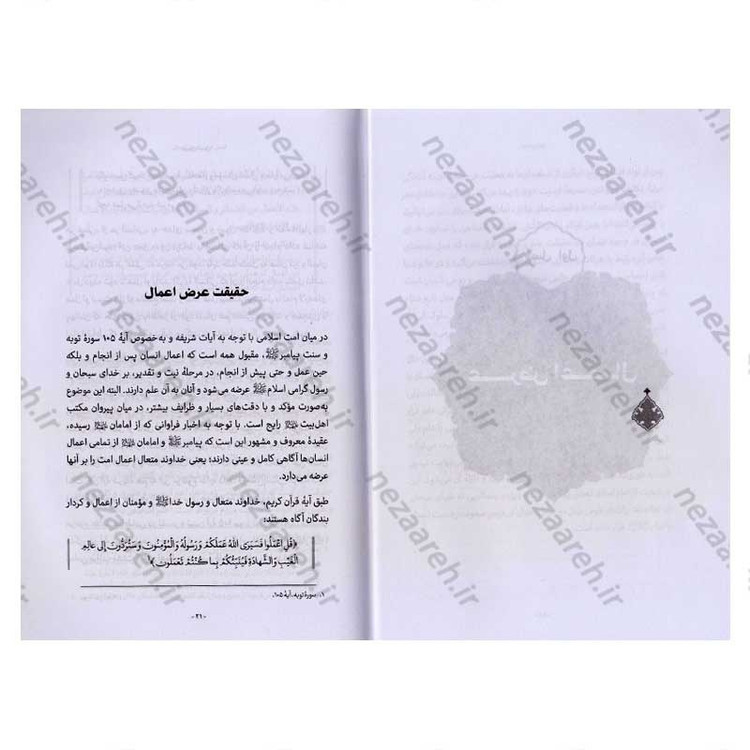 حقیقت عرض اعمال
در میان امت اسلامی با توجه به آیات شریفه و به‌خصوص آیهٔ ۱۰۵ سورهٔ توبه
و سنت پیامبر ﷺ، مقبول همه است که اعمال انسان پس از انجام و بلکه
حین عمل و حتی پیش از انجام، در مرحلهٔ نیت و تقدیر، بر خدای سبحان و
رسول گرامی اسلام ﷺ عرضه می‌شود و آنان به آن علم دارند. البته این موضوع
به‌صورت مؤکد و با دقت‌های بسیار و ظرایف بیشتر، در میان پیروان مکتب
اهل‌بیت رایج است. با توجه به اخبار فراوانی که از امامان رسیده،
عقیدهٔ معروف و مشهور این است که پیامبر ﷺ و امامان از تمامی اعمال
انسان‌ها آگاهی کامل و عینی دارند؛ یعنی خداوند متعال اعمال امت را بر آنها
عرضه می‌دارد.
طبق آیهٔ قرآن کریم، خداوند متعال و رسول خدا ﷺ و مؤمنان از اعمال و کردار
بندگان آگاه هستند:
﴿قُلِ اعْمَلُوا فَسَيَرَى اللَّهُ عَمَلَكُمْ وَرَسُولُهُ وَالْمُؤْمِنُونَ وَسَتُرَدُّونَ إِلَى عَالِمِ
الْغَيْبِ وَالشَّهَادَةِ فَيُنَبِّئُكُمْ بِمَا كُنْتُمْ تَعْمَلُونَ﴾¹
۱. سورهٔ توبه، آیهٔ ۱۰۵.
- ۲۱ -
nezaareh.ir
nezaareh.ir
nezaareh.ir
nezaareh.ir
nezaareh.ir
nezaareh.ir
nezaareh.ir
nezaareh.ir
nezaareh.ir
nezaareh.ir